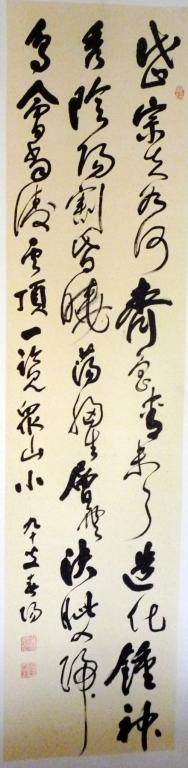 岱宗夫如何齊魯青未了造化鍾神
秀陰陽割昏曉蕩胸生層雲決眥入歸
鳥會當凌絕頂一覽眾山小 九十